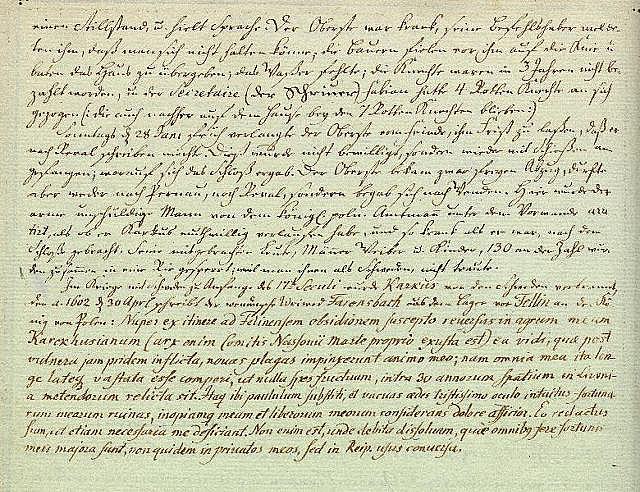 einen Stillstand, u. hielt Sprache. Der Oberste war krank, seine Befehlshaber melde-
ten ihm, daß man sich nicht halten könne; die Bauern fielen vor ihm auf die Knie u.
baten das Haus zu übergeben; das Waßer fehlte; die Knechte waren in 3 Jahren nicht be-
zahlt worden, u. der Secretaire (der Schriwer) Fabian hatte 4 Rotten Knechte an sich
gezogen (: die auch nachher auf dem Hause bey den 7 Rotten Knechten blieben :)
Sonntags d 28 Juni verlangte der Oberste vom Feinde, ihm Frist zu laßen, daß er
nach Reval schreiben möchte. Dieß wurde nicht bewilligt, sondern wieder mit Schießen an
gefangen; worauf sich das Schloß ergab. Der Oberste bekam zwar freyen Abzug, durfte
aber weder nach Pernau, noch Reval, sondern begab sich nach Wenden. Hier wurde der
arme unschuldige Mann von dem Königl. poln. Amtmann unter dem Vorwande arre
tirt, als ob er Karkus muthwillig verlaufen habe, und so krank als er war, nach dem
Schloß gebracht. Seine mitgebrachten Leute, Männer Weiber u. Kinder, 130 an der Zahl wur
den zusammen in eine Rie gesperrt; weil man ihnen als Schweden, nicht traute.
Im Kriege mit Schweden zu Anfange des 17 Seculi wurde Karkus von den Schweden verbrannt,
den a. 1602 d 30 Apl. schreibt der Woiwod Farensbach aus dem Lager vor Fellin an den Kö
nig von Polen: Nuper ex itinere ad Felinensem obsidionem suscepto reversus in agrum meum
Karckhusianum (arx enim Comitis Nassovii Marte proprio exusta est) ea vidi, quæ post
vulnera jam pridem inflicta, novas plagas impinxerunt animo meo; nam omnia mea ita lon-
ge lateq vastata esse comperi, ut nulla spes fructuum, intra 30 annorum spatium in Livoni-
a metendorum relicta sit. Itaq ibi paululum substiti, et vacuas ædes tristissimo oculo intuitus fortuna-
rum mearum ruinas, inopiamq meam et liberorum meorum considerans dolore afficior. Eo redactus
sum, ut etiam necessaria me deficiant. Non enim est, unde debita dissolvam, quæ omnibq fere fortunis
meis majora sunt, non quidem in privatos meos, sed in Reip. usus conversa.